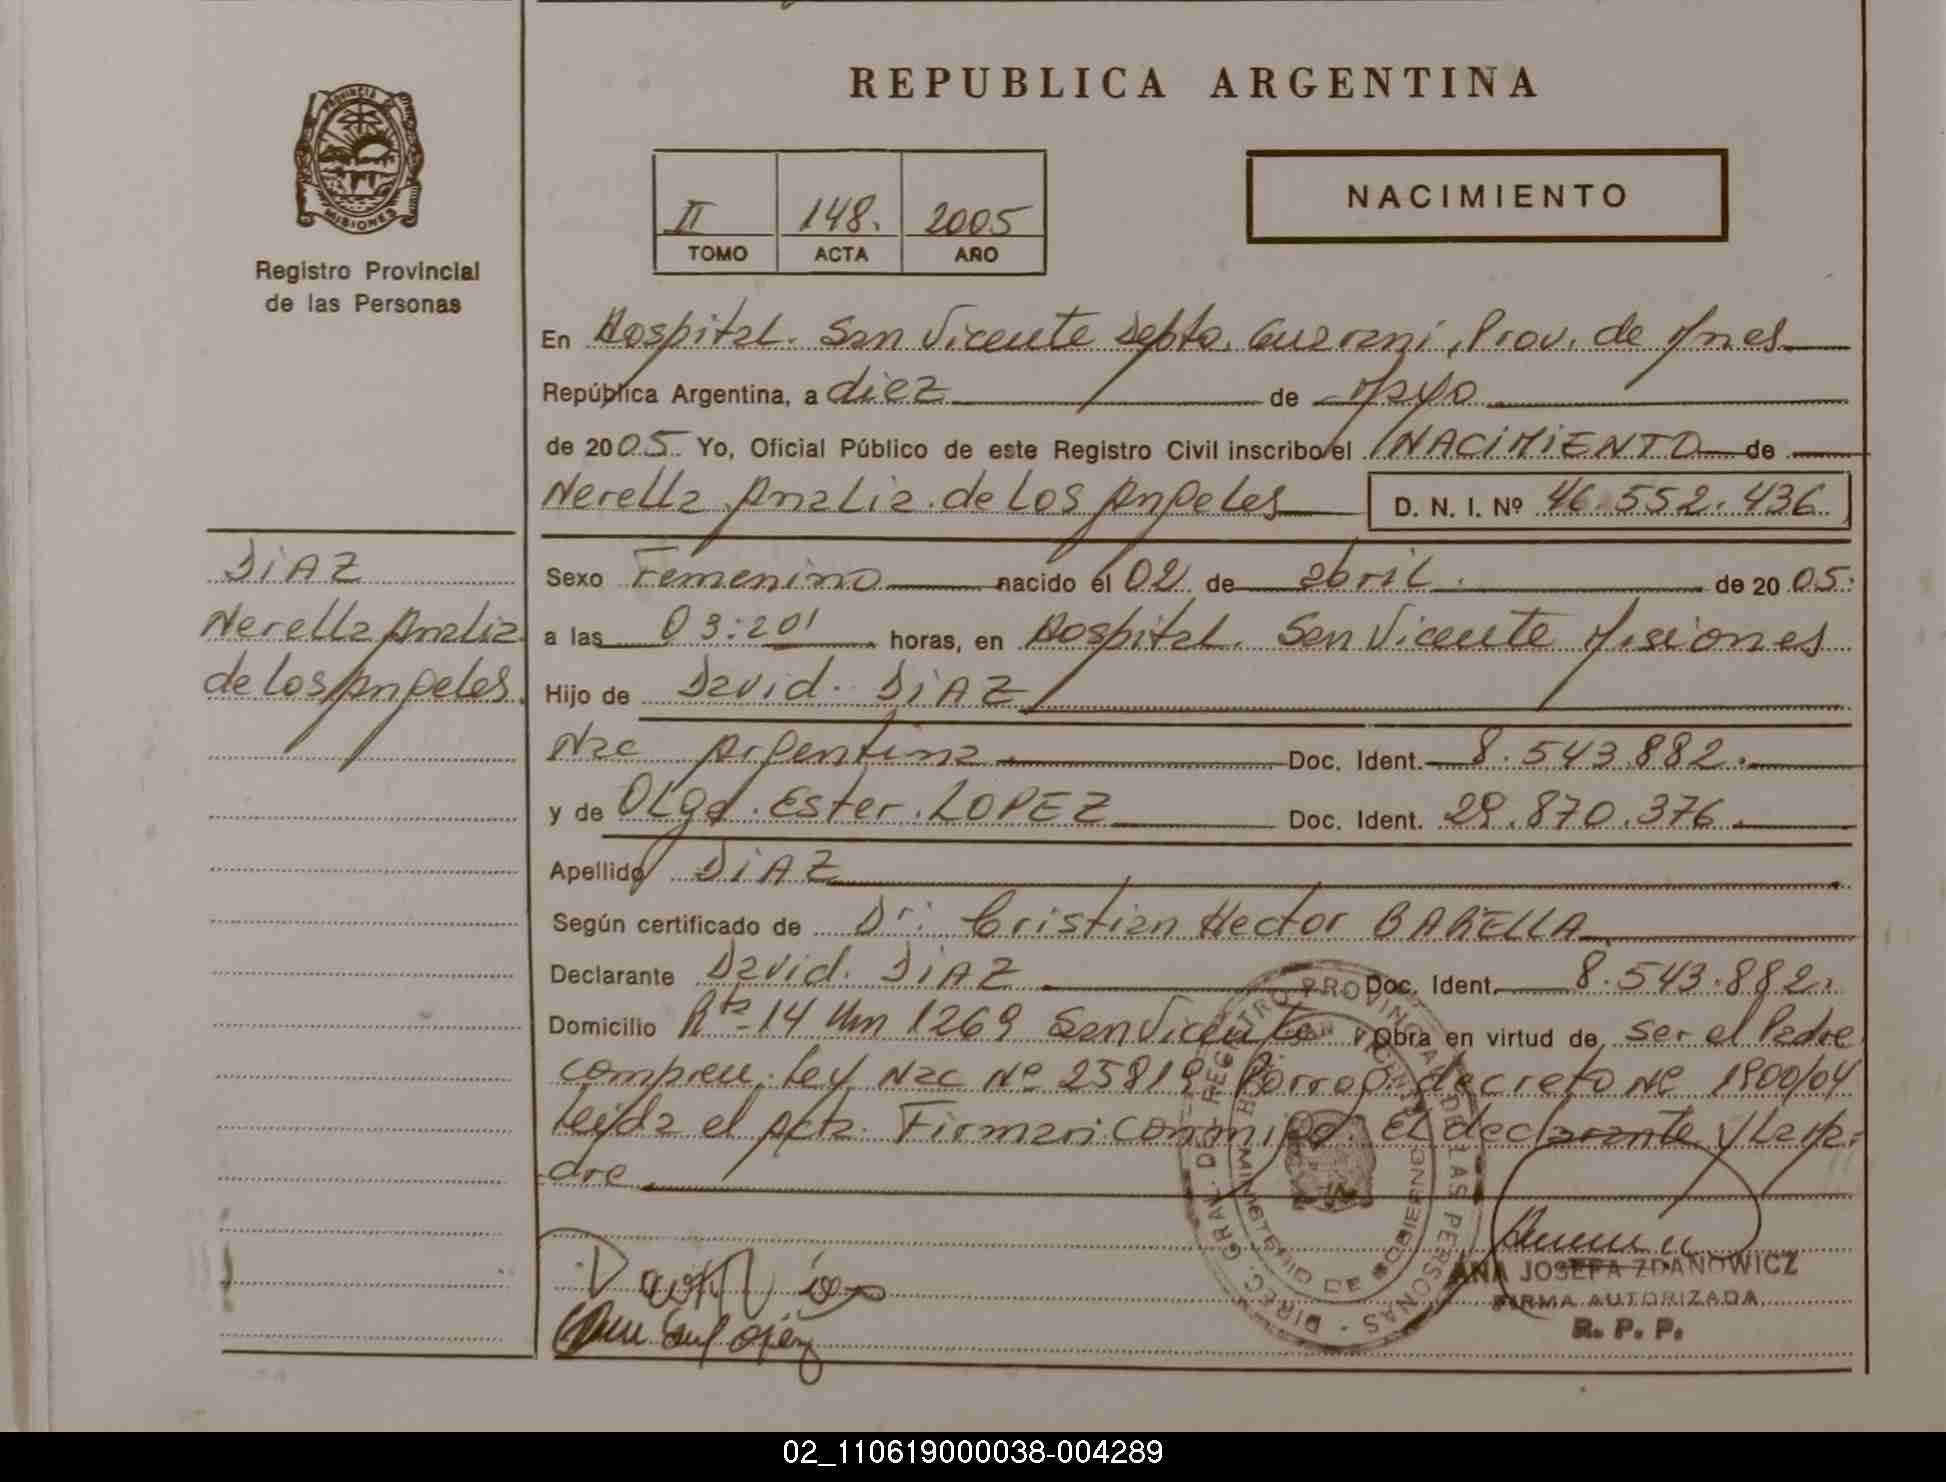 REPUBLICA ARGENTINA
PROVINCIA DE
MISIONES
Registro Provincial
de las Personas
II 148. 2005
TOMO ACTA AÑO
NACIMIENTO
En Hospital. San Vicente Depto. Guarani, Prov. de Mnes
República Argentina, a diez de Mayo
de 2005 Yo, Oficial Público de este Registro Civil inscribo el NACIMIENTO de
Nerella Analia de los Angeles D. N. I. Nº 46.552.436
DIAZ
Nerella Analia
de los Angeles.
Sexo Femenino nacido el 02 de abril. de 2005.
a las 03:20' horas, en Hospital. San Vicente Misiones
Hijo de David. DIAZ
Nac Argentina Doc. Ident. 8.543.882.
y de Olga. Ester. LOPEZ Doc. Ident. 29.870.376.
Apellido DIAZ
Según certificado de Dr: Cristian Hector BARELLA
Declarante David. DIAZ Doc. Ident. 8.543.882.
Domicilio Rta 14 Km 1269 San Vicente Obra en virtud de ser el Padre
Ley Nac Nº 25819 Prorrog. decreto Nº 1900/04
Leida el Acta. Firman conmigo. El declarante y la Ma-
dre
DIREC. GRAL. DEL REGISTRO PROVINCIAL DE LAS PERSONAS
MINISTERIO DE GOBIERNO
ANA JOSEFA ZDANOWICZ
FIRMA AUTORIZADA
R. P. P.
02_110619000038-004289